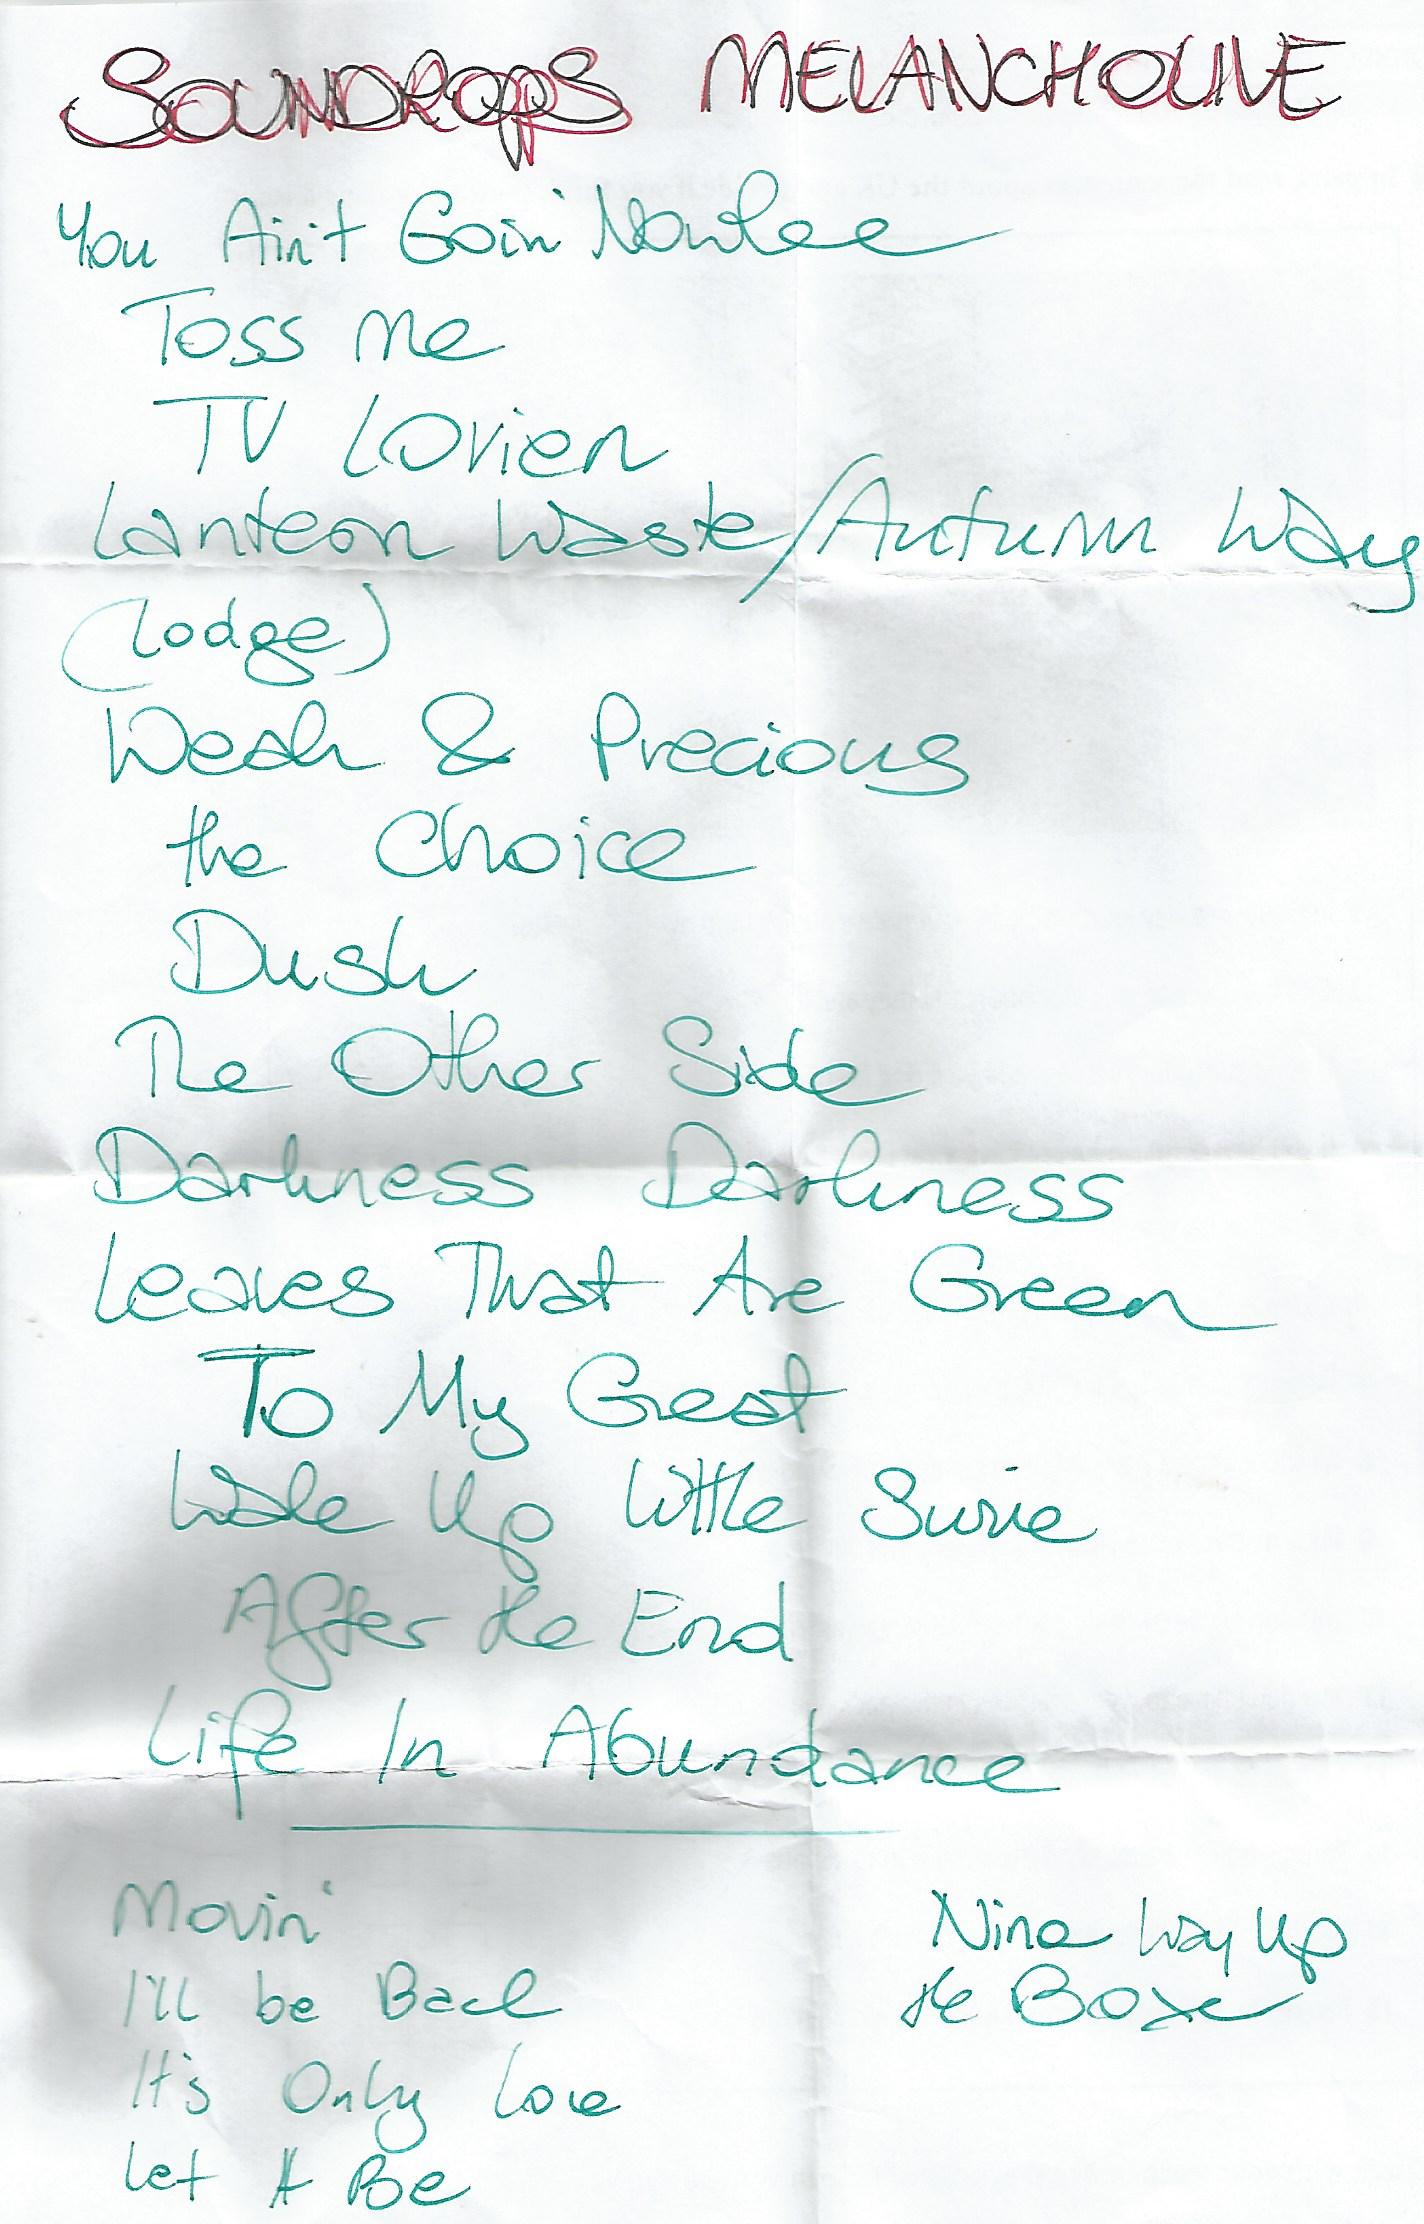 SOUNDROPS MELANCHOLINE
You Ain't Goin' Nowhee
Toss Me
TV Lovien
Lantern Waste / Autumn Way
(lodge)
Weak & Precious
the Choice
Dusk
The Other Side
Darkness Darkness
Leaves That Are Green
To My Great
Wake Up Little Susie
After the End
Life In Abundance
Movin'
I'll be Back
It's Only Love
Let It Be
Nine Way Up
the Boxer